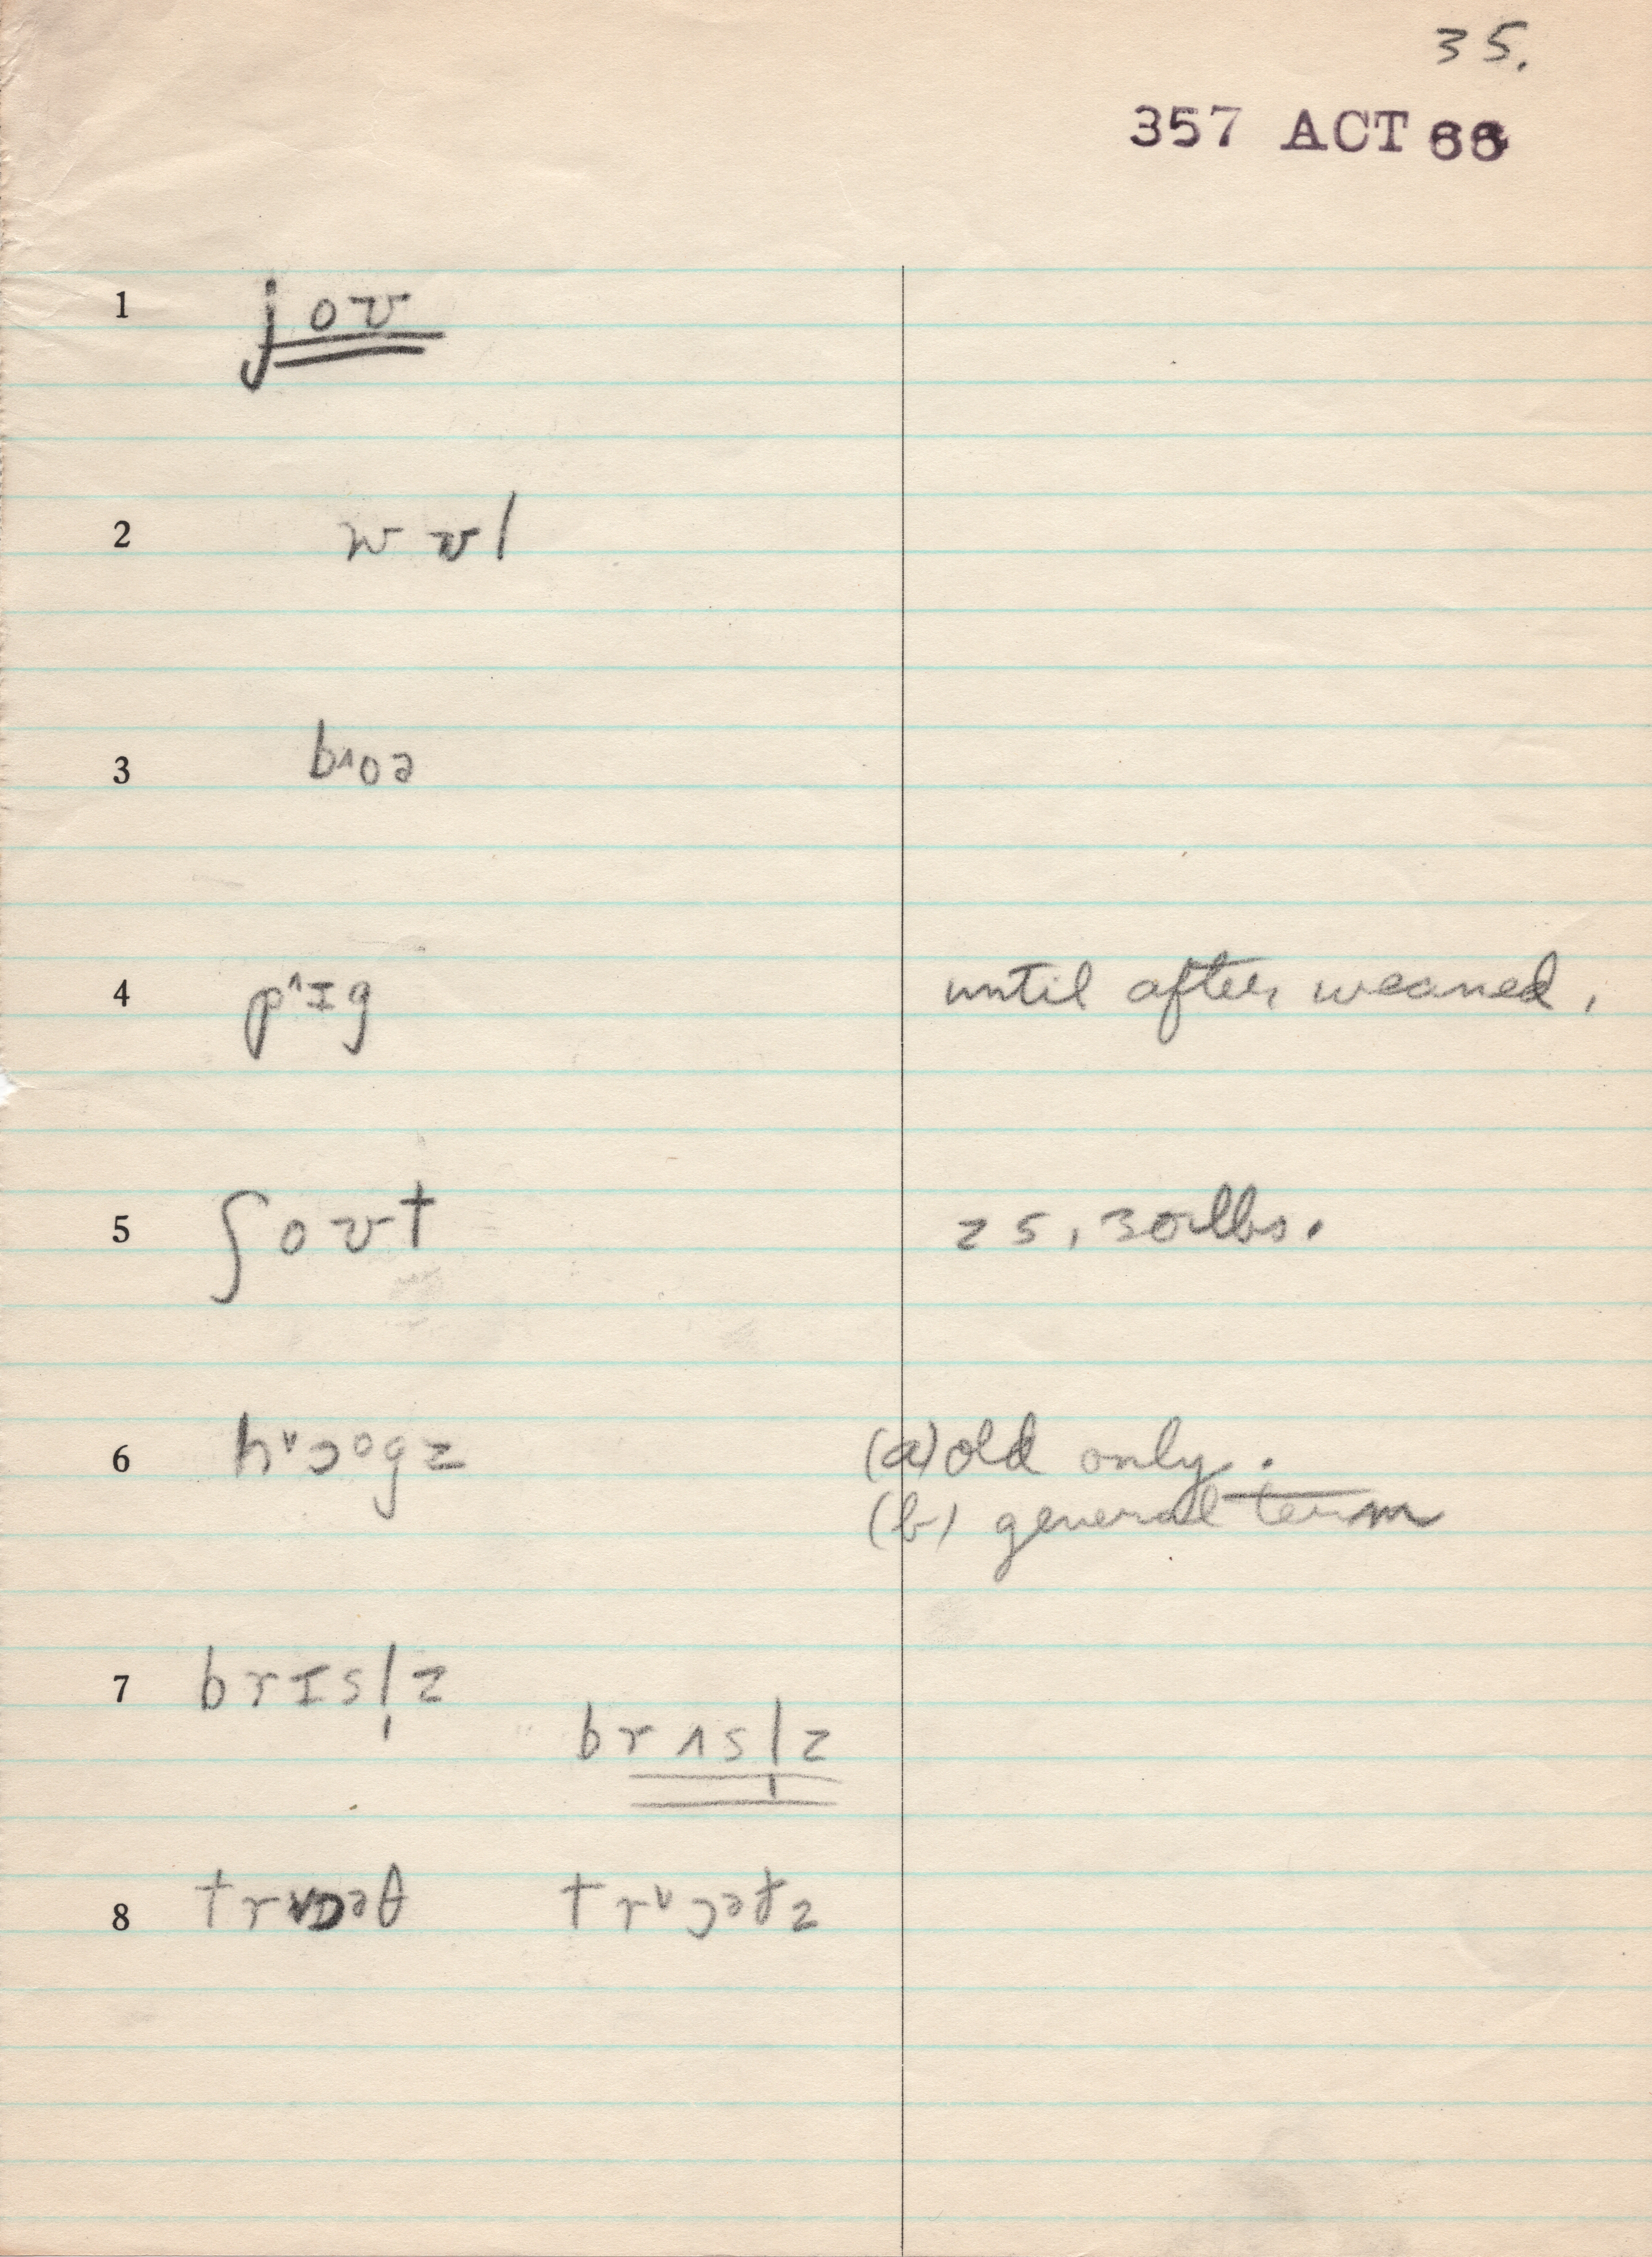 35.
357 ACT 66
1 joʊ
2 wʊl
3 b^oə
4 p^ɪg until after weaned.
5 ʃoʊt 25, 30 lbs.
6 hᵛɔᵒgz (a) old only.
(b) general term
7 brɪsl̩z
brʌsl̩z
8 trɒəθ trᵛɔətz